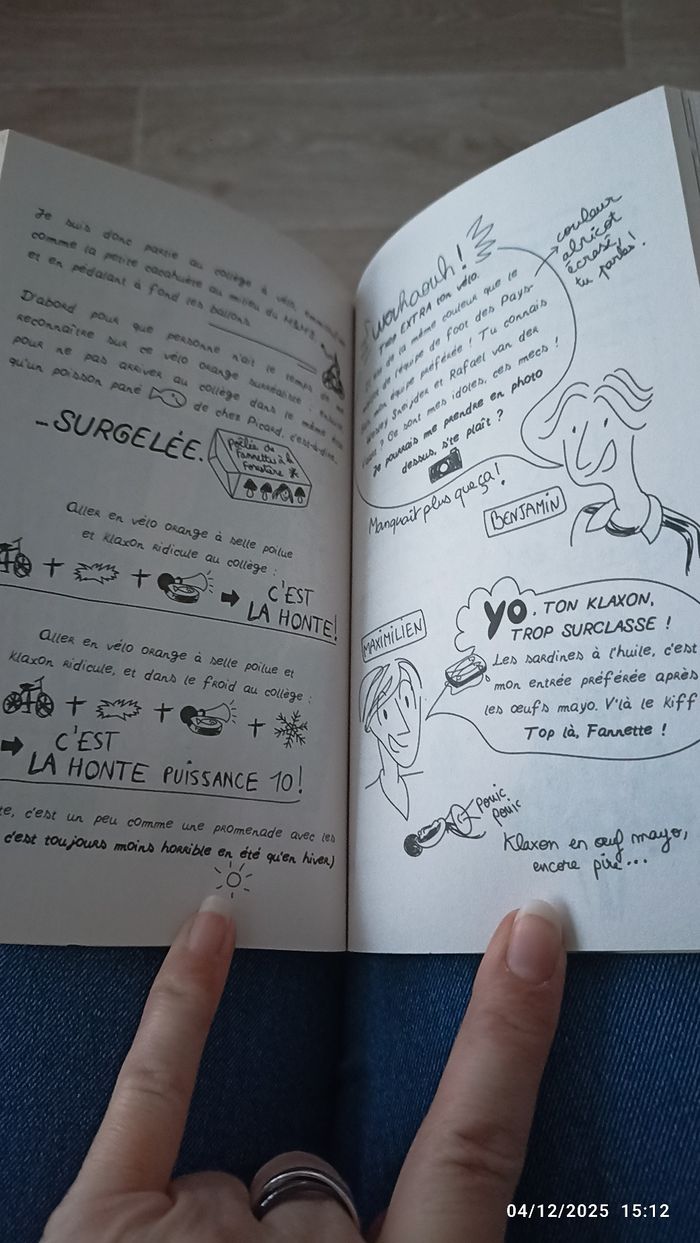 Je suis donc partie au collège à vélo,
comme la petite cacahuète au milieu du M&M'S,
et en pédalant à fond les ballons.
D'abord pour que personne n'ait le temps de me
reconnaître sur ce vélo orange surréaliste ; ensuite
pour ne pas arriver au collège dans le même état
qu'un poisson pané de chez Picard, c'est-à-dire...
...SURGELÉE.
Poêlée de
Fannette à la
Forestière *
Aller en vélo orange à selle poilue
et klaxon ridicule au collège :
+ + C'EST
LA HONTE!
Aller en vélo orange à selle poilue et
klaxon ridicule, et dans le froid au collège :
+ + +
C'EST
LA HONTE PUISSANCE 10!
te, c'est un peu comme une promenade avec les
c'est toujours moins horrible en été qu'en hiver)
couleur
abricot
écrasé,
tu parles!
Wouhaouh!
Trop EXTRA ton vélo.
de la même couleur que le
de l'équipe de foot des Pays-
mon équipe préférée! Tu connais
Wesley Sneijder et Rafael van der
? Ce sont mes idoles, ces mecs!
Je pourrais me prendre en photo
dessus, s'te plaît ?
Manquait plus que ça!
BENJAMIN
MAXIMILIEN
YO. TON KLAXON,
TROP SURCLASSE !
Les sardines à l'huile, c'est
mon entrée préférée après
les œufs mayo. V'là le kiff
Top là, Fannette !
Pouic
pouic
Klaxon en œuf mayo,
encore pire...
04/12/2025 15:12